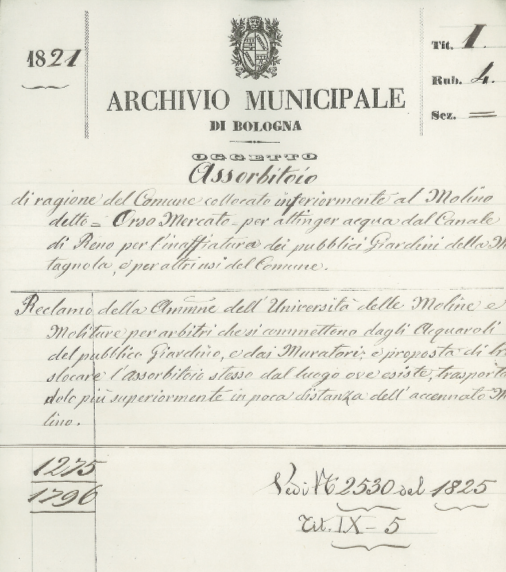 1821
Tit. I.
Rub. 4.
Sez. =
ARCHIVIO MUNICIPALE
DI BOLOGNA
OGGETTO
Assorbitoio
di ragione del Comune collocato inferiormente al Molino
detto = Orso Mercato = per attinger acqua dal Canale
di Reno per l'inaffiatura dei pubblici Giardini della M
tagnola, e per altri usi del Comune.
Reclamo della Ammne dell'Università delle Moline e
Moliture per arbitri che si commettono dagli Acquaroli
del pubblico Giardino, e dai Muratori; e proposta di tra
slocare l'assorbitoio stesso dal luogo ove esiste, trasporta
dolo più superiormente in poca distanza dell'accennato M
lino.
1275
1796
Vedi N. 2530 del 1825
Tit. IX - 5